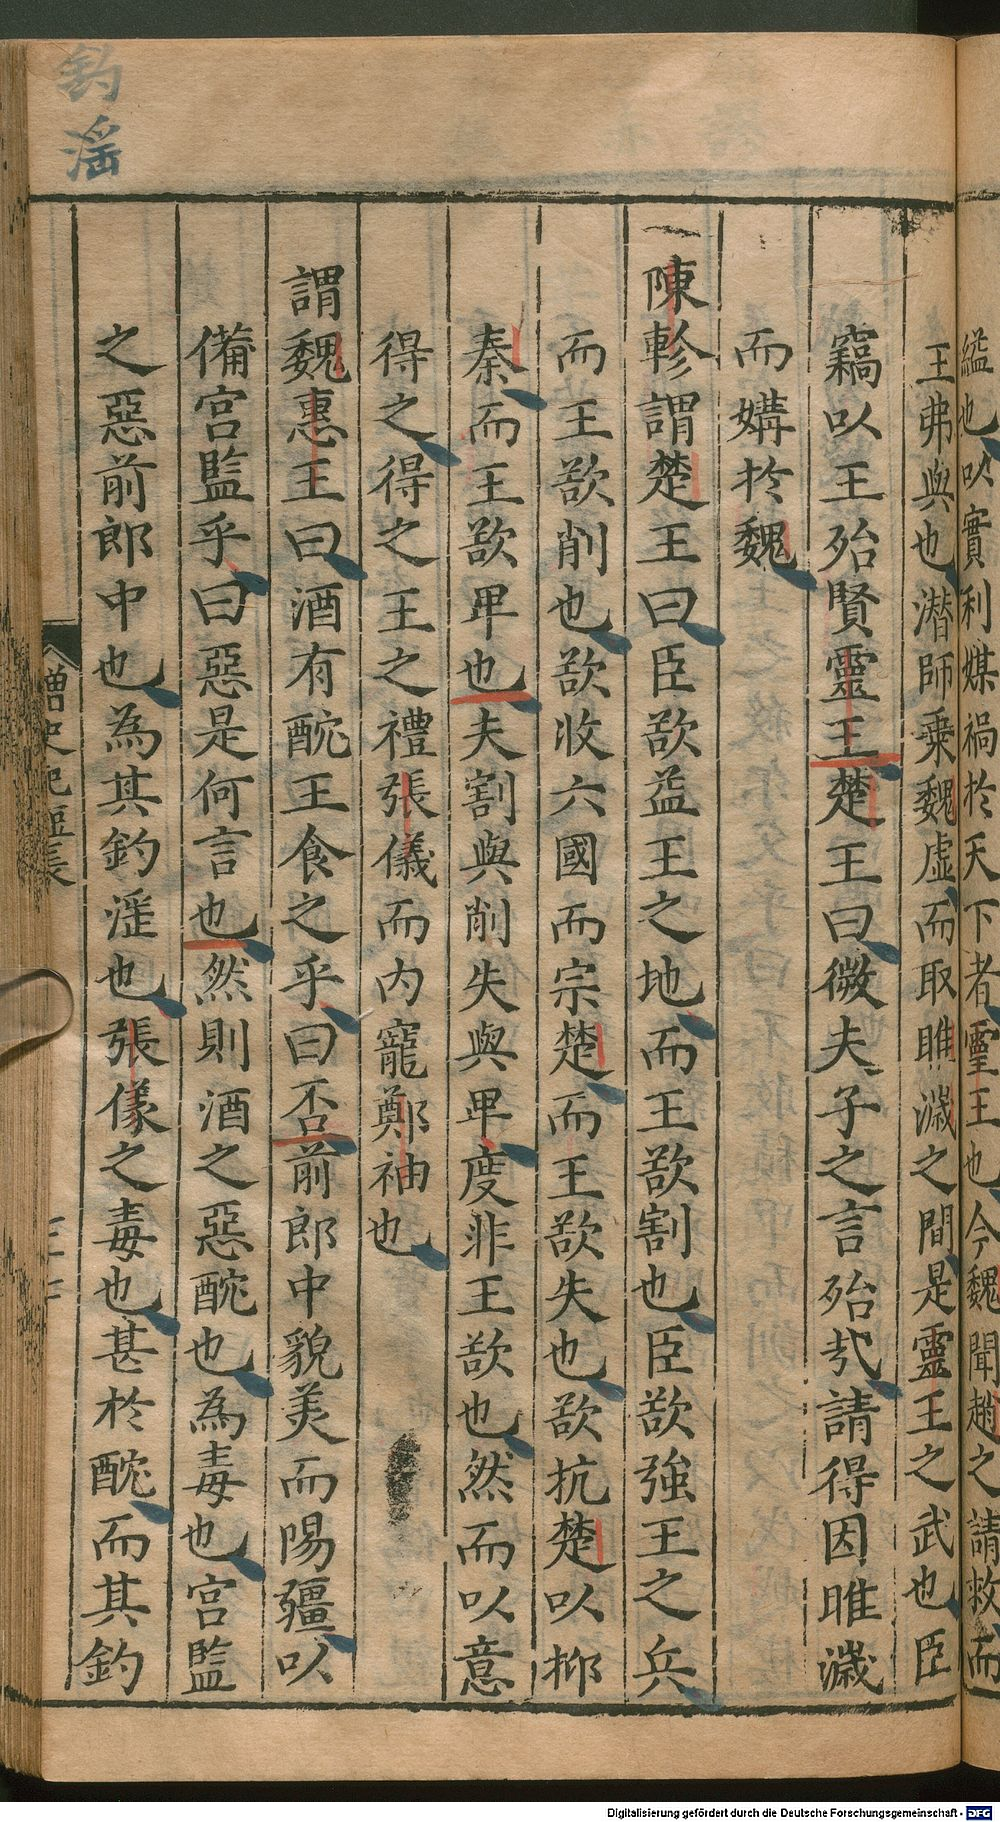 縊也以實利媒禍於天下者靈王也今魏聞趙之請救而
王弗與也潛師乗魏虛而取睢濊之間是靈王之武也臣
竊以王殆賢靈王楚王曰微夫子之言殆㢤請得因睢濊
而媾於魏
一陳軫謂楚王曰臣欲益王之地而王欲割也臣欲強王之兵
而王欲削也欲收六國而宗楚而王欲失也欲抗楚以抑
秦而王欲卑也夫割與削失與卑度非王欲也然而以意
得之得之王之禮張儀而内寵鄭袖也
謂魏惠王曰酒有酖王食之乎曰否前郎中貌美而陽彊以
備宮監乎曰惡是何言也然則酒之惡酖也為毒也宮監
之惡前郎中也為其釣淫也張儀之毒也甚於酖而其釣
釣淫
短長
Digitalisierung gefördert durch die Deutsche Forschungsgemeinschaft - DFG